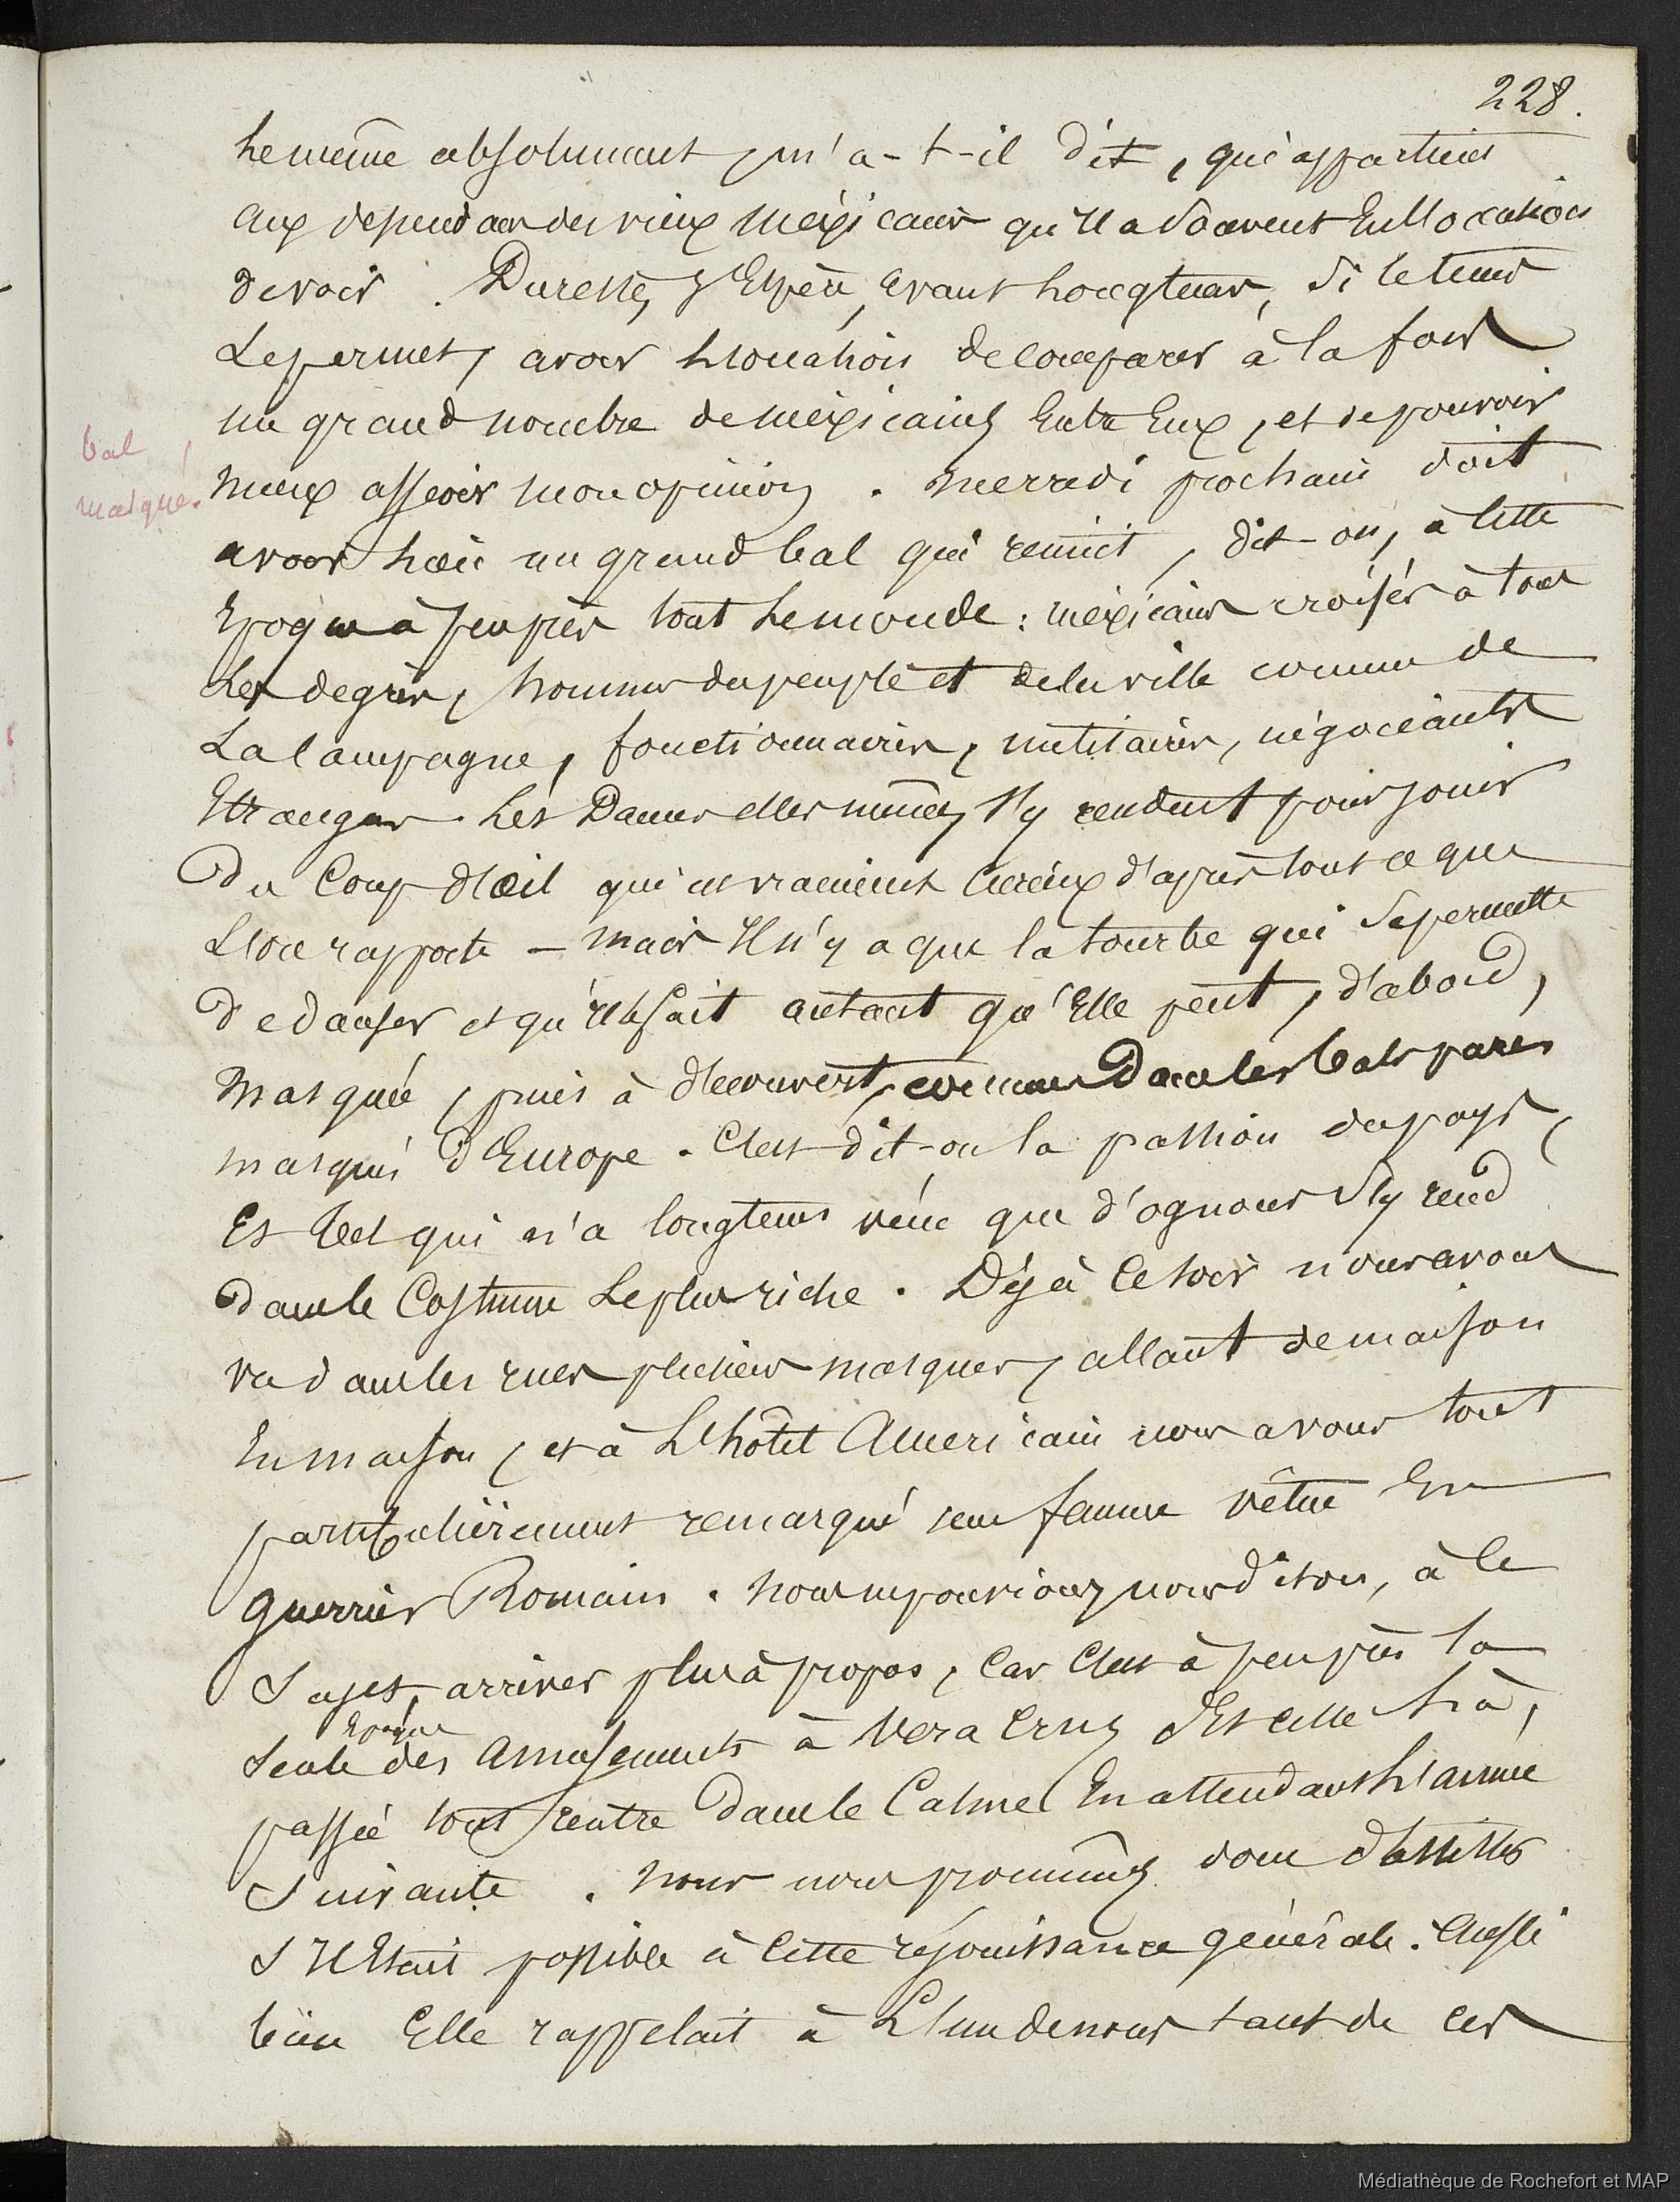 228.
Le même absolument, m'a-t-il dit, qui appartient
aux dependans des vieux mexicains qu'il a souvent eu l'occasion
de voir. Dureste, J'Espère, avant longtems, si le tems
Le permet, avoir l'occasion de comparer à la fois
un grand nombre de mexicains Entre Eux, et de pouvoir
mieux asseoir mon opinion. mercredi prochain doit
bal
masqué.
avoir lieu un grand bal qui reunit, dit-on, à cette
Epoque à peu près tout Le monde : mexicains croisés à tous
Les degrés, hommes du peuple et de la ville comme de
La Campagne, fonctionnaires, militaires, négociants
Etrangers. Les Dames elles mêmes s'y rendent pour jouir
Du Coup d'oeil qui est vraiment Curieux d'après tout ce que
L'on rapporte - mais Il n'y a que la tourbe qui se permette
De danser et qui le fait autant qu'Elle peut, d'abord,
masquée, puis à découvert, comme Dans les bals parés
masqués d'Europe. C'est dit-on la passion du pays,
Et tel qui n'a longtems vécu que d'ognons s'y rend
Dans le Costume Le plus riche. Déjà Ce soir nous avons
vu dans les rues plusieurs masques, allant de maison
En maison, et à L'hôtel Americain nous avons tout
particulièrement remarqué une femme vêtue En
guerrier Romain. Nous ne pouvions, nous dit-on, à ce
Sujet, arriver plus à propos, Car C'est à peu près la
Seule Epoque des Amusements à Vera Cruz Et celle là,
passée tout rentre Dans le Calme En attendant L'année
Suivante. Nous nous promîmes donc d'assister
S'Il Etait possible à Cette réjouissance générale. Aussi
bien Elle rappelait à L'un de nous tant de ces
Médiathèque de Rochefort et MAP